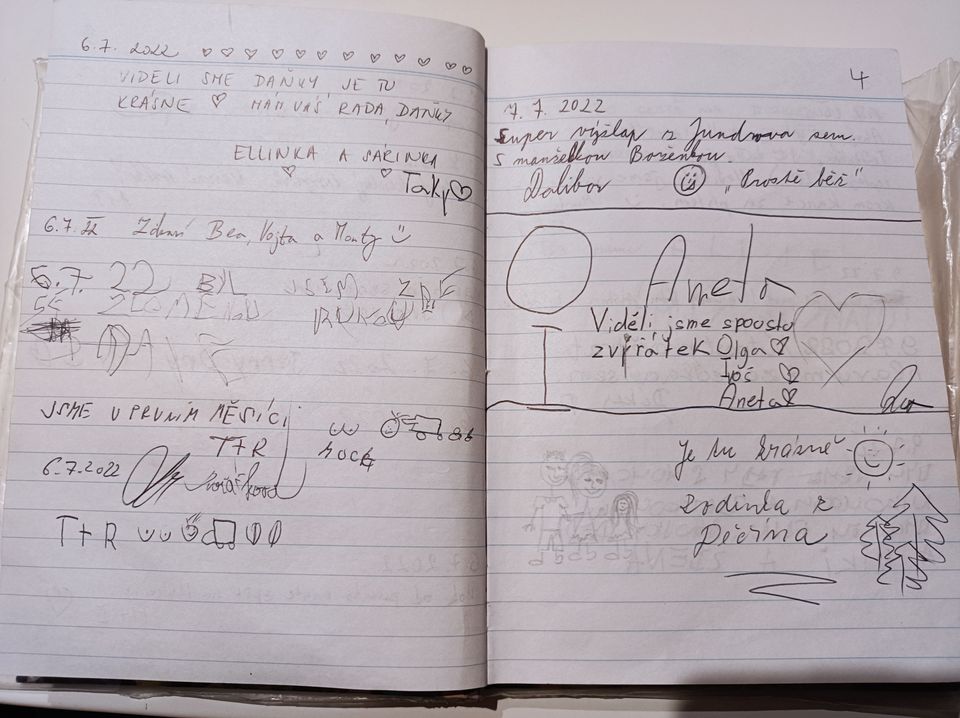 6.7. 2022
VIDELI SME DAŇKY, JE TU
KRÁSNE MÁM VÁS RADA, DAŇKY
ELLINKA A SÁRINKA
Taky
6.7. 22 Zdraví Bea, Vojta a Monty
6.7. 22 BYL JSEM ZDE
SE ZLOMENOU RUKOU
JSME V PRVNÍM MĚSÍCI
T+R
6.7.2022
T+R
4
7. 7. 2022
Super výšlap z Jundrova sem.
S manželkou Boženkou.
Dalibor „Prostě běž"
Aneta
Viděli jsme spousto
zvýřátek Olga
Aneta
Je tu krásně
rodinka z
Děčína